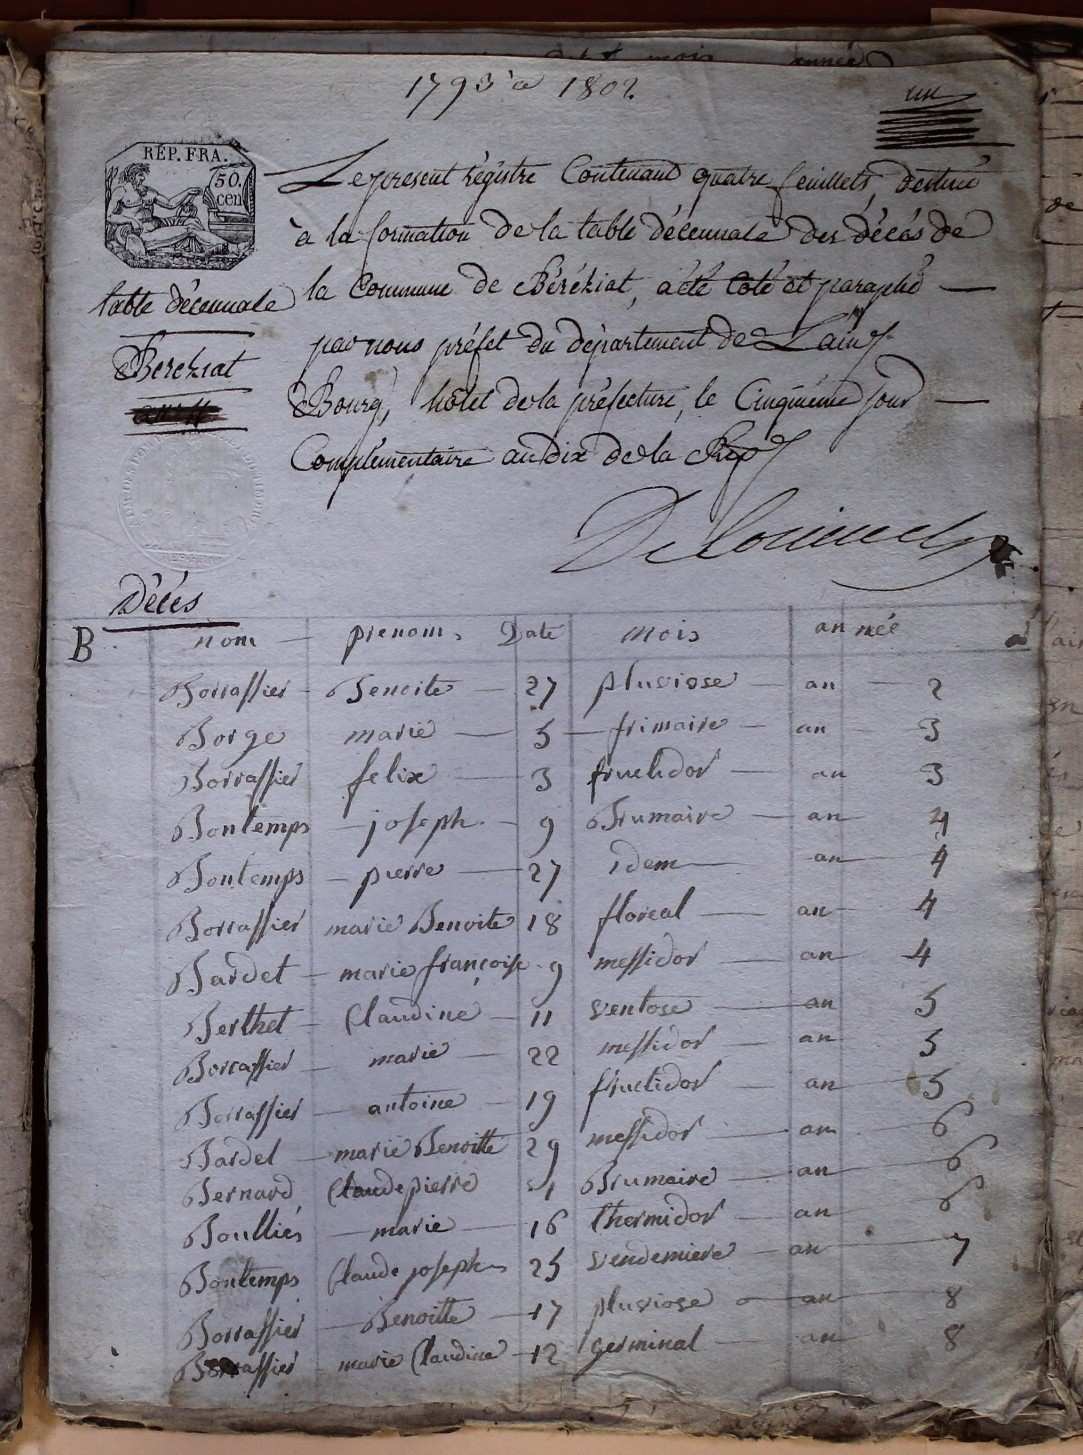 1793 à 1802
un
RÉP. FRA.
50.
cen
Le present régistre Contenand quatre feuillets, destiné
à la formation de la table décennale des décés de
la Commune de Béréziat, a été coté et paraphé
par nous préfet du département de L'ain,
Bourg, hôtel de la préfecture, le Cinquiéme jour
Complémentaire an dix de la Rep
table décennale
Bereziat
Décés
B nom prenoms Date mois année
Borrassier Benoite 27 pluviose an 2
Borge marie 5 frimaire an 3
Borrassier felix 3 fructidor an 3
Bontemps joseph 9 Brumaire an 4
Bontemps pierre 27 idem an 4
Borrassier marie Benoite 18 floreal an 4
Bardet marie françoise 9 messidor an 4
Berthet Claudine 11 ventose an 5
Borrassier marie 22 messidor an 5
Borrassier antoine 19 fructidor an 5
Bardel marie Benoitte 29 messidor an 6
Bernard Claude pierre 1 Brumaire an 6
Boulliés marie 16 thermidor an 6
Bontemps Claude joseph 25 vendemiere an 7
Borrassier Benoitte 17 pluviose an 8
Borrassier marie Claudine 12 germinal an 8